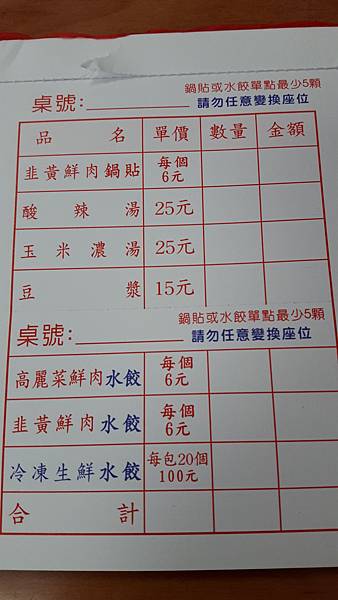 鍋貼或水餃單點最少5顆
桌號:
請勿任意變換座位
品名 單價 數量 金額
韭黃鮮肉鍋貼 每個6元
酸辣湯 25元
玉米濃湯 25元
豆漿 15元
鍋貼或水餃單點最少5顆
桌號:
請勿任意變換座位
高麗菜鮮肉水餃 每個6元
韭黃鮮肉水餃 每個6元
冷凍生鮮水餃 每包20個100元
合計